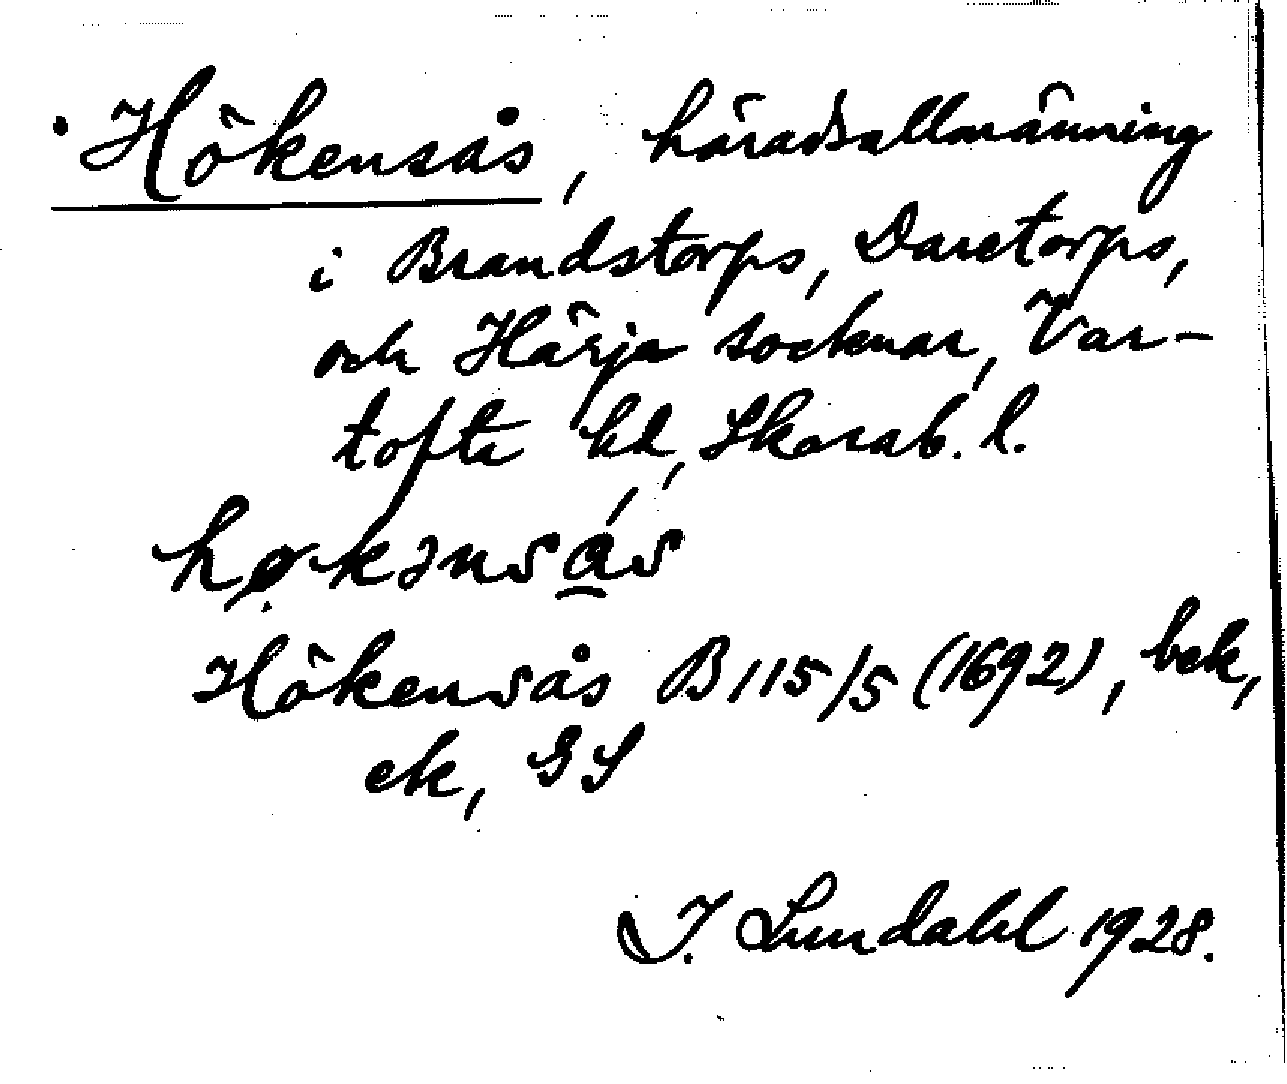 Hökensås, häradsallmänning
i Brandstorps, Daretorps,
och Härja socknar, Var-
tofta hd, Skarab. l.
hø̣kənsås
Hökensås B115/5 (1692), bek,
ek, GS
I. Lundahl 1928.